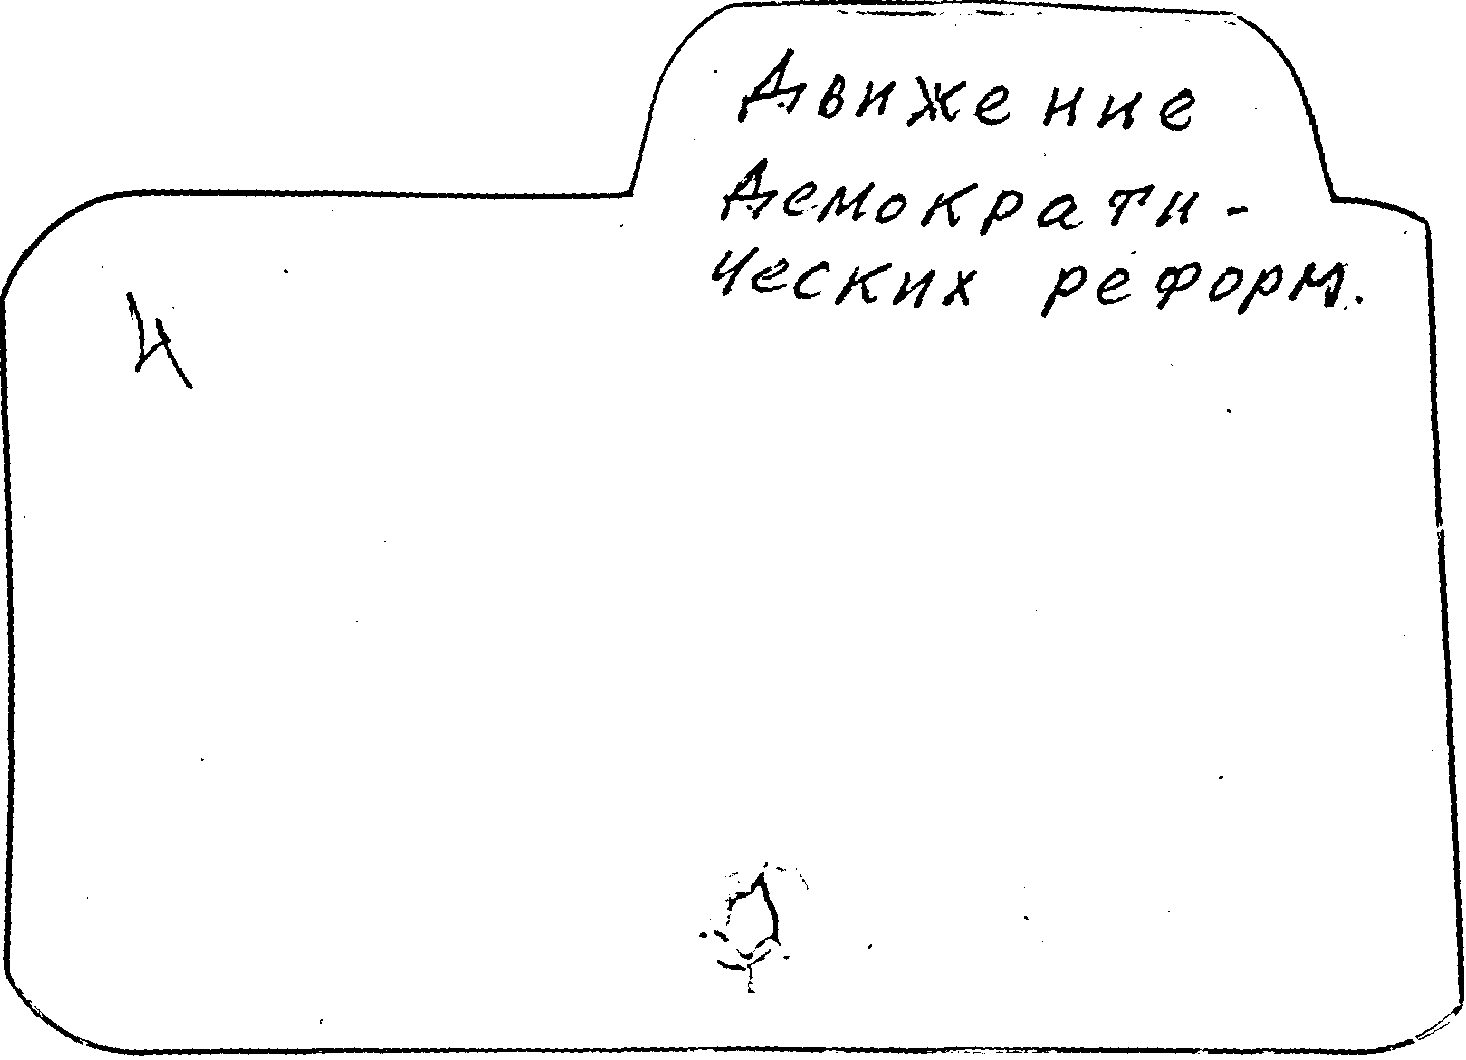 Движение
Демократи-
ческих реформ.
И